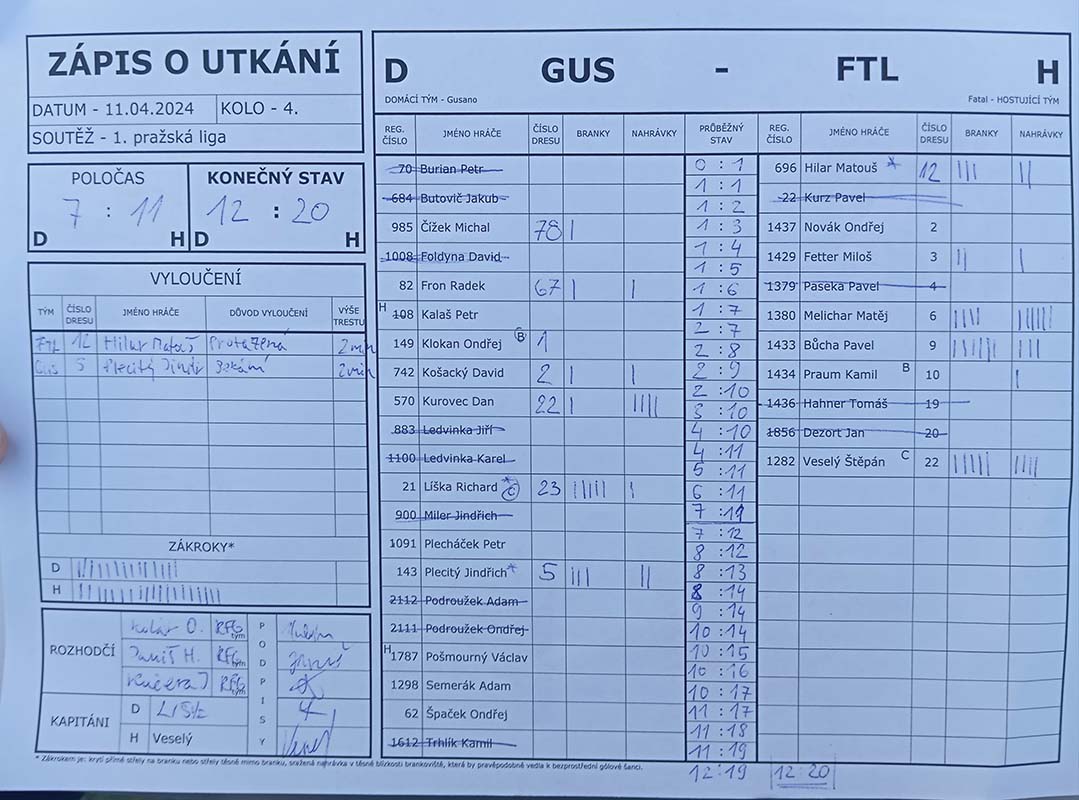 ZÁPIS O UTKÁNÍ
DATUM - 11.04.2024 KOLO - 4.
SOUTĚŽ - 1. pražská liga
POLOČAS
7 : 11
D H
KONEČNÝ STAV
12 : 20
D H
VYLOUČENÍ
TÝM ČÍSLO DRESU JMÉNO HRÁČE DŮVOD VYLOUČENÍ VÝŠE TRESTU
FTL 12 Hilar Matouš 2 min
GUS 5 Plecitý Jindř 2 min
ZÁKROKY*
D
H
ROZHODČÍ
Kolář O. RFG tým
Janiš H. RFG tým
Kučera J RFG tým
PODPISY
KAPITÁNI
D
H Veselý
D GUS - FTL H
DOMÁCÍ TÝM - Gusano Fatal - HOSTUJÍCÍ TÝM
REG. ČÍSLO JMÉNO HRÁČE ČÍSLO DRESU BRANKY NAHRÁVKY
70 Burian Petr
684 Butovič Jakub
985 Čížek Michal 78 |
1008 Foldyna David
82 Fron Radek 67 | |
H 108 Kalaš Petr
149 Klokan Ondřej B 1
742 Košacký David 2 | |
570 Kurovec Dan 22 | ||||
883 Ledvinka Jiří
1100 Ledvinka Karel
21 Líška Richard * C 23 ||||| |
900 Miler Jindřich
1091 Plecháček Petr
143 Plecitý Jindřich * 5 ||| ||
2112 Podroužek Adam
2111 Podroužek Ondřej
H 1787 Pošmourný Václav
1298 Semerák Adam
62 Špaček Ondřej
1612 Trhlík Kamil
PRŮBĚŽNÝ STAV
0 : 1
1 : 1
1 : 2
1 : 3
1 : 4
1 : 5
1 : 6
1 : 7
2 : 7
2 : 8
2 : 9
2 : 10
3 : 10
4 : 10
4 : 11
5 : 11
6 : 11
7 : 11
7 : 12
8 : 12
8 : 13
8 : 14
9 : 14
10 : 14
10 : 15
10 : 16
10 : 17
11 : 17
11 : 18
11 : 19
12 : 19
12 : 20
REG. ČÍSLO JMÉNO HRÁČE ČÍSLO DRESU BRANKY NAHRÁVKY
696 Hilar Matouš * 12 ||| ||
22 Kurz Pavel
1437 Novák Ondřej 2
1429 Fetter Miloš 3 || |
1379 Paseka Pavel 4
1380 Melichar Matěj 6 |||| ||||||
1433 Bůcha Pavel 9 |||||| |||
1434 Praum Kamil B 10 |
1436 Hahner Tomáš 19
1856 Dezort Jan 20
1282 Veselý Štěpán C 22 ||||| ||||
* Zákrokem je: krytí přímé střely na branku nebo střely těsně mimo branku, sražená nahrávka v těsné blízkosti brankoviště, která by pravěpodobně vedla k bezprostřední gólové šanci.